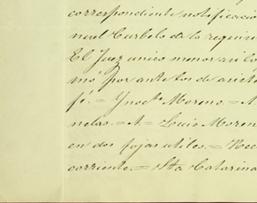 correspondiente notificació
nuel Curbelo de la requiri
El Juez unico menor asi lo
mó por ante los de asiste
fé. = Ynoc.º Moreno = A
nelas. = A = Louis Moren
en dos fojas utiles. = Rec
corriente. = Sta Catarina